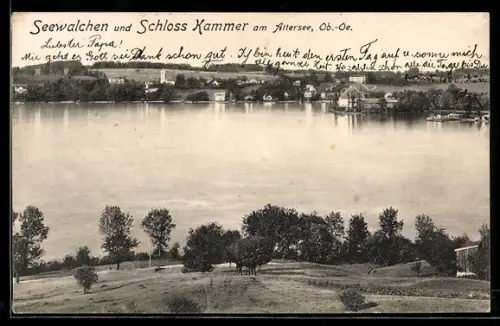 Seewalchen und Schloss Kammer am Attersee, Ob.-Oe.
Liebster Papa!
Mir geht es Gott sei Dank schon gut. Ich bin heut den ersten Tag auf u. sonne mich
die ganze Zeit. alle die Tage